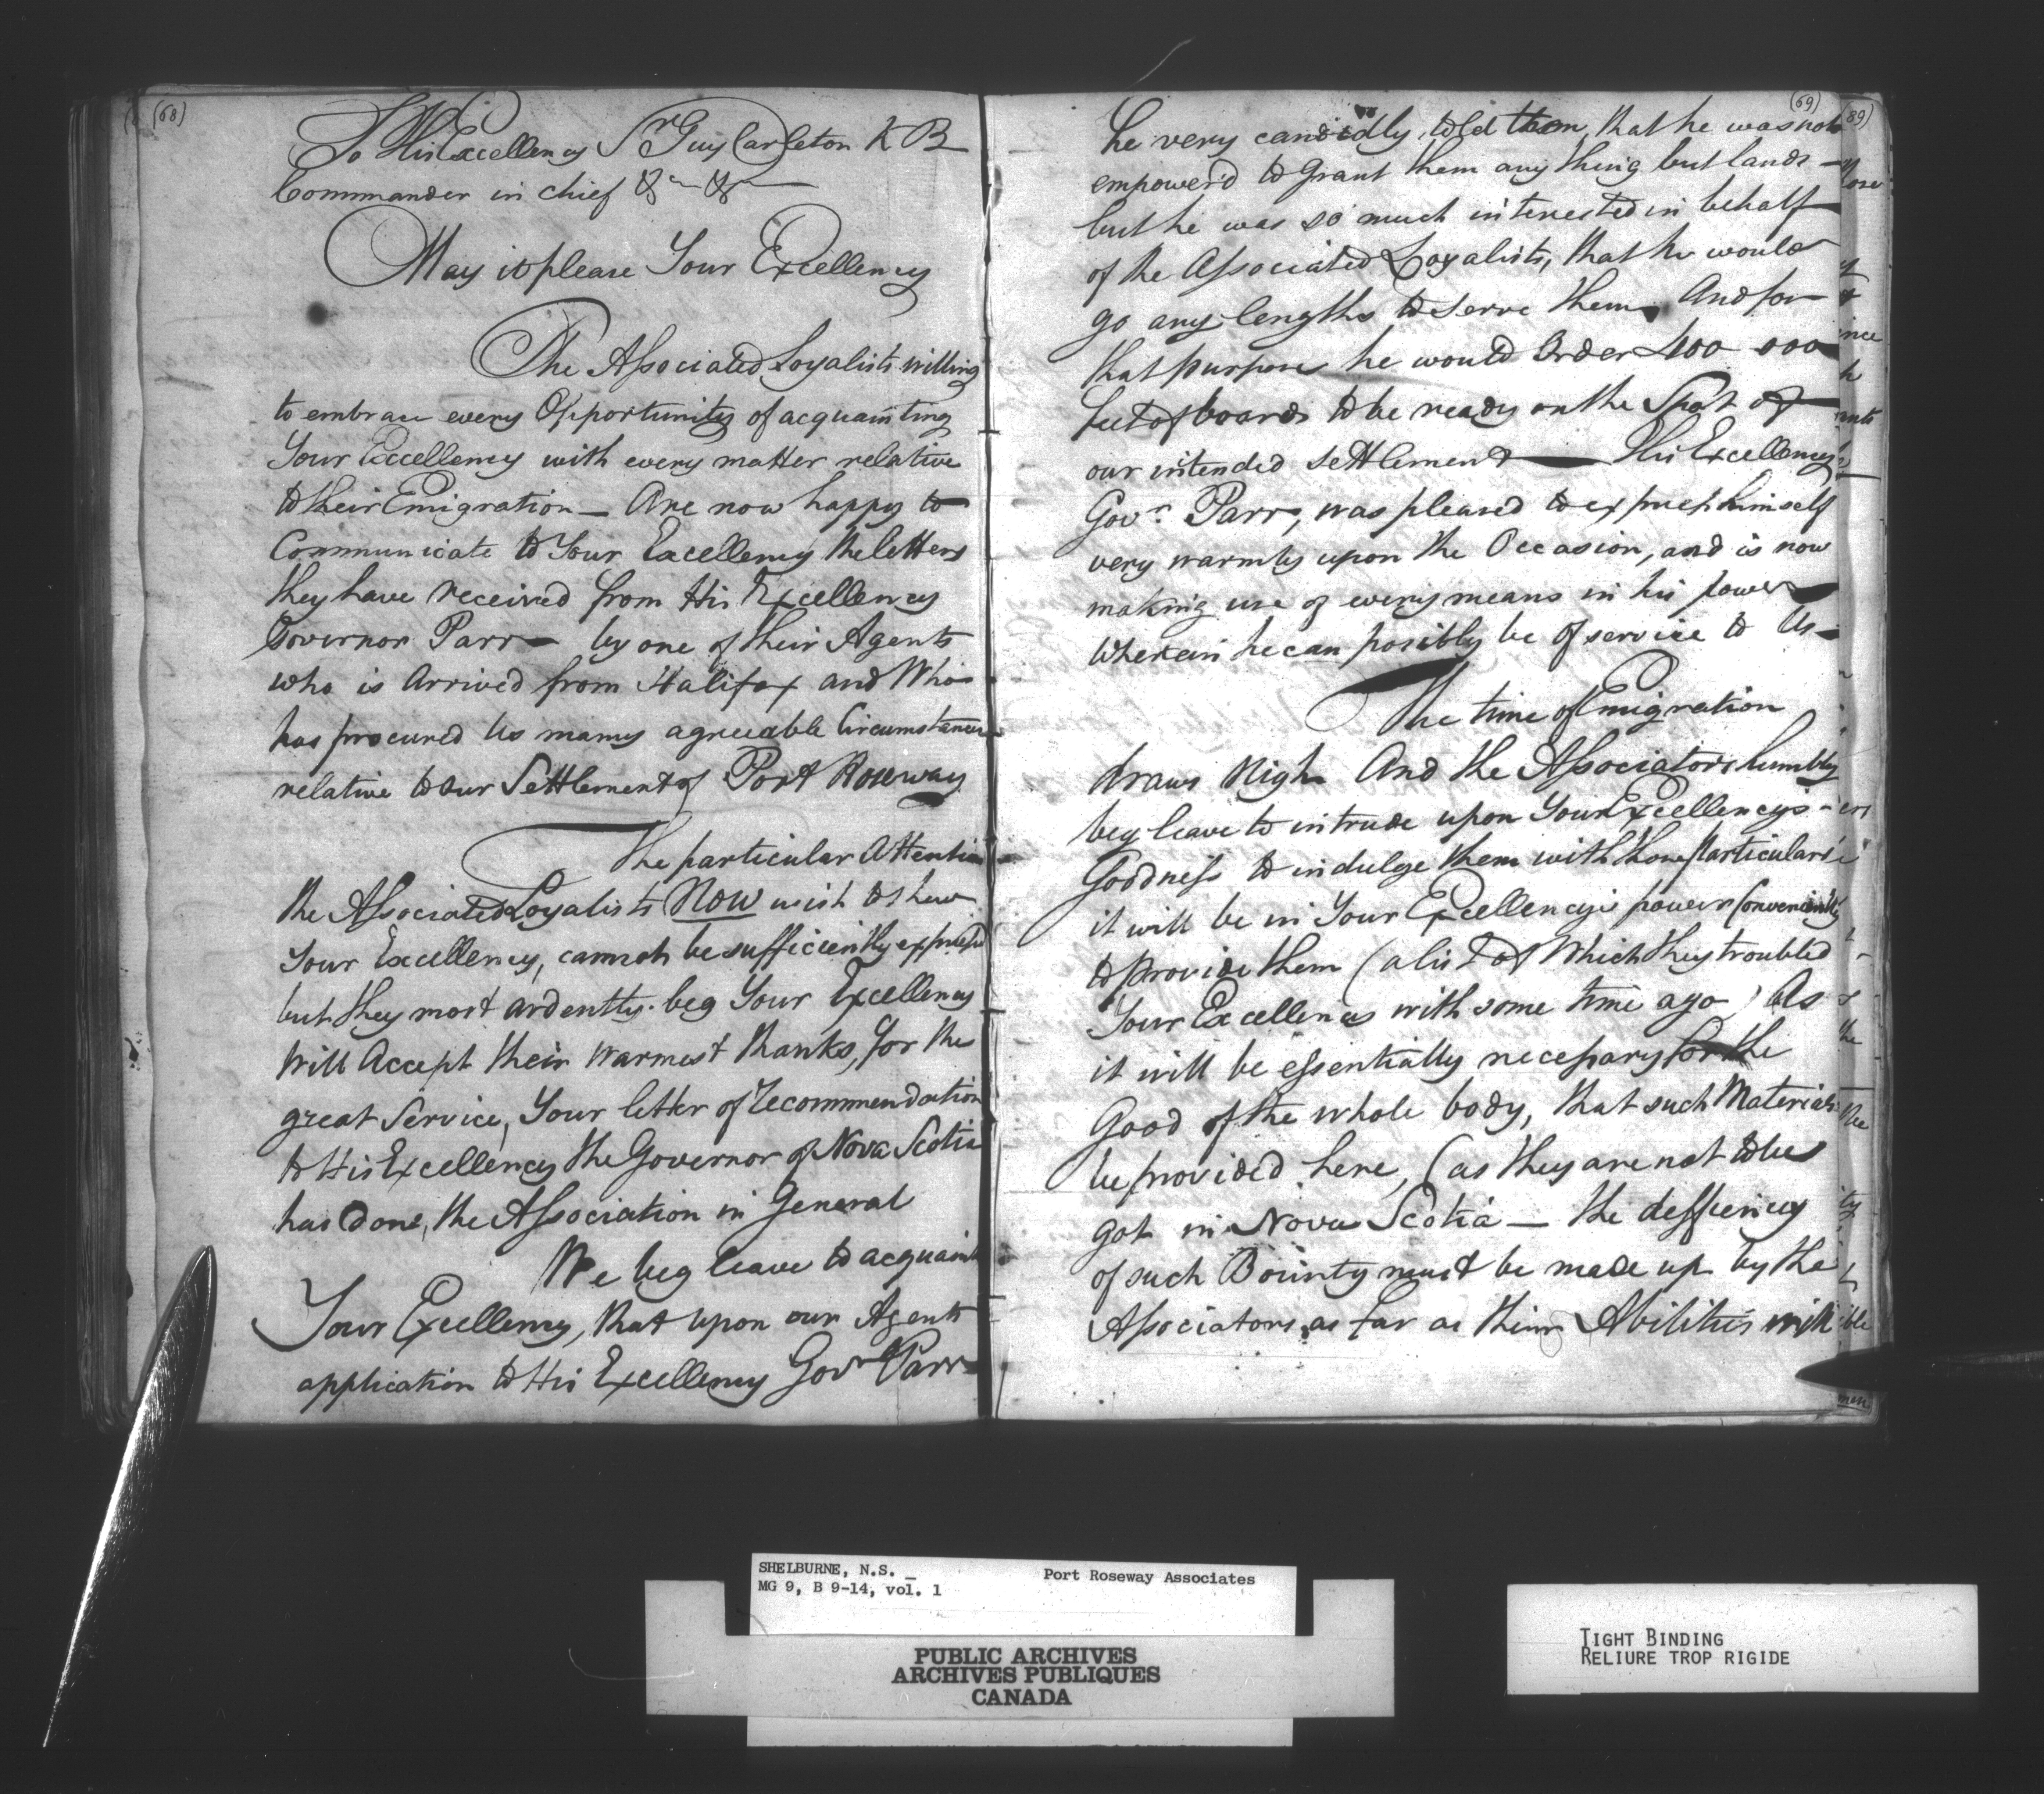 (68)
To His Excellency Sr. Guy Carleton K B
Commander in chief &c &c
May it please Your Excellency
The Associated Loyalists willing
to embrace every Opportunity of acquainting
Your Excellency with every matter relative
to their Emigration — Are now happy to
Communicate to Your Excellency the letters
they have received from His Excellency
Governor Parr — by one of their Agents
who is Arrived from Halifax and Who
has procured Us many agreeable Circumstances
relative to our Settlement of Port Roseway
The particular Attention
the Associated Loyalists Now wish to shew
Your Excellency, cannot be sufficiently express'd
but they most ardently beg Your Excellency
Will Accept their warmest thanks, for the
great Service, Your letter of Recommendation
to His Excellency the Governor of Nova Scotia
has done, the Association in General
We beg leave to acquaint
Your Excellency, that upon our Agents
application to His Excellency Govr Parr
(69)
he very candidly, told them, that he was not
empower'd to grant them any thing but lands —
but he was so much interested in behalf
of the Associated Loyalists, that he would
go any lengths to serve them, And for
that purpose he would Order 400 000
feet of boards to be ready on the Spot of
our intended settlement — His Excellency
Govr. Parr, was pleased to express himself
very warmly upon the Occasion, and is now
making use of every means in his power
Wherein he can posibly be of service to Us —
The time of Emigration
draws Nigh And the Associators humbly
beg leave to intrude upon Your Excellency's
Goodness to indulge them with those particulars
it will be in Your Excellencys power Conveniently
to provide them (a list of Which they troubled
Your Excellency with some time ago) As
it will be essentially necessary for the
Good of the whole body, that such Materials
be provided here, (as they are not to be
got in Nova Scotia — the defficiency
of such Bounty must be made up by the
Associators, as far as their Abilities will
(89)
men
SHELBURNE, N.S. _
MG 9, B 9-14, vol. 1
Port Roseway Associates
PUBLIC ARCHIVES
ARCHIVES PUBLIQUES
CANADA
TIGHT BINDING
RELIURE TROP RIGIDE